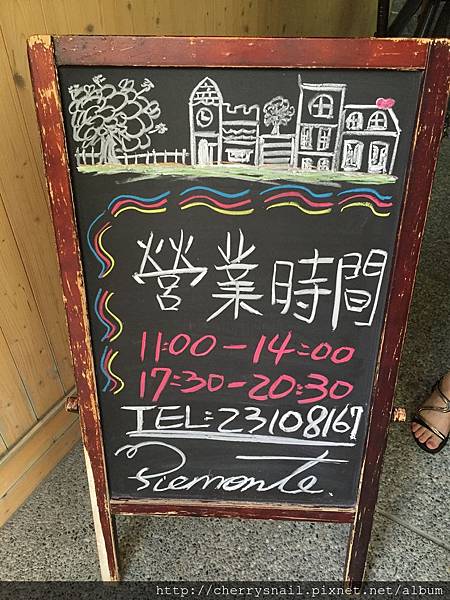 營業時間
11:00-14:00
17:30-20:30
TEL:23108167
Piemonte.
http://cherrysnail.pixnet.net/album